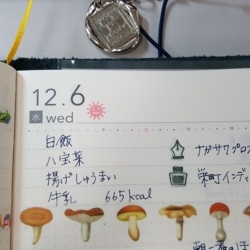 12.6
水 wed
白飯
八宝菜
揚げしゅうまい
牛乳 665kcal
ナガサワプロス
栄町インディ